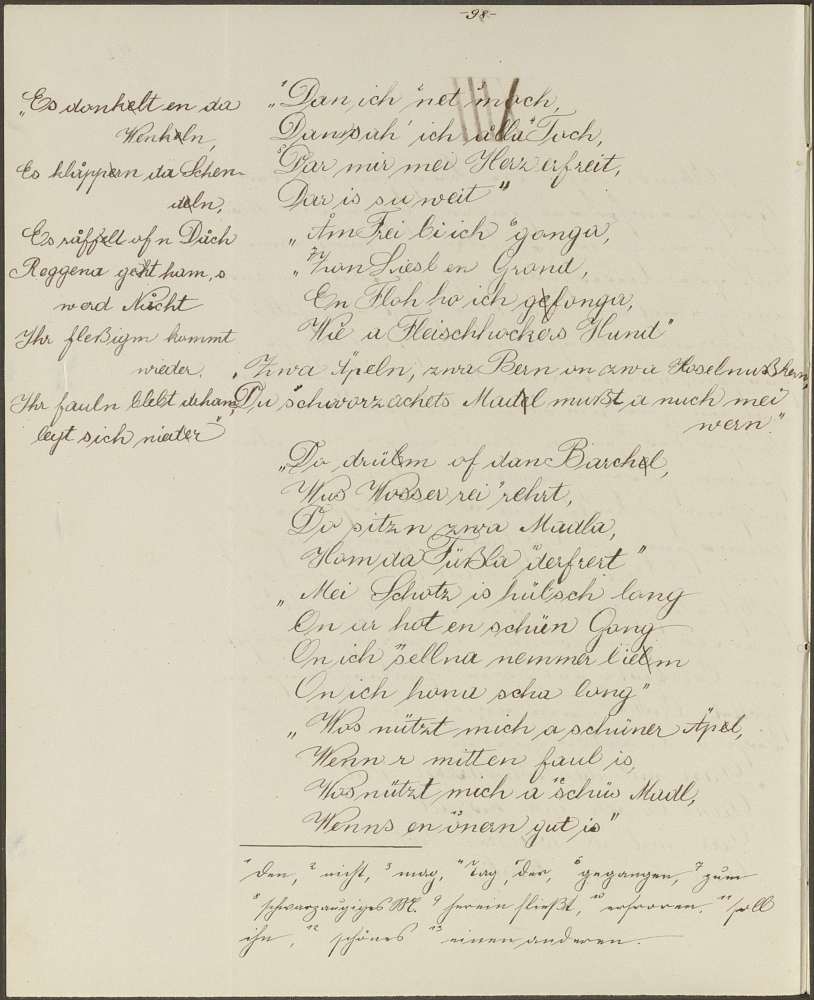 -98-
„Es donkelt en da
Wenkeln,
Es klåppern da Schen-
deln,
Es råffelt ofn Dåch
Reggena geht ham, s
werd Nåcht
Ihr fleßigm kommt
wieder.
Ihr fauln blebt deham,
legt sich nieder"
„¹Dan ich ²net ³moch,
Dan sah' ich ålla ⁴Toch,
⁵Dar mir mei Herz erfreit,
Dar is su weit"
„Åm Frei bi ich ⁶gonga,
„⁷Zvon Liesl en Grond,
En Floh ho ich gefonga,
Wie a Fleischhockers Hund"
„Zwa Äpeln, zwa Bern on zwa Hoselnußkern,
Du ⁸schworzachets Madel mußt a nuch mei
wern."
„Do drübm of dan Barchel,
Wus Wosser rei ⁹rehrt,
Do sitzn zwa Madla,
Hom da Füßla ¹⁰derfrert"
„Mei Schotz is hübsch long
On ar hot en schün Gong
On ich ¹¹sellna nemmer liebm
On ich hona scha long"
„Wos nützt mich a schüner Äpel,
Wenn r mitten faul is,
Wos nützt mich a ¹²schüs Madl,
Wenns en ¹³ånern gut is"
¹den, ² nicht, ³ mag, ⁴ Tag, ⁵der, ⁶ gegangen, ⁷ zum
⁸ schwarzaugiges M. ⁹ herein fließt, ¹⁰ erfroren. ¹¹ soll
ihn, ¹² schönes ¹³ einen anderen.